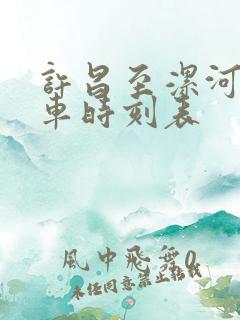 許昌至漯河
車時刻表
風中飛舞0
未经同意禁止转载